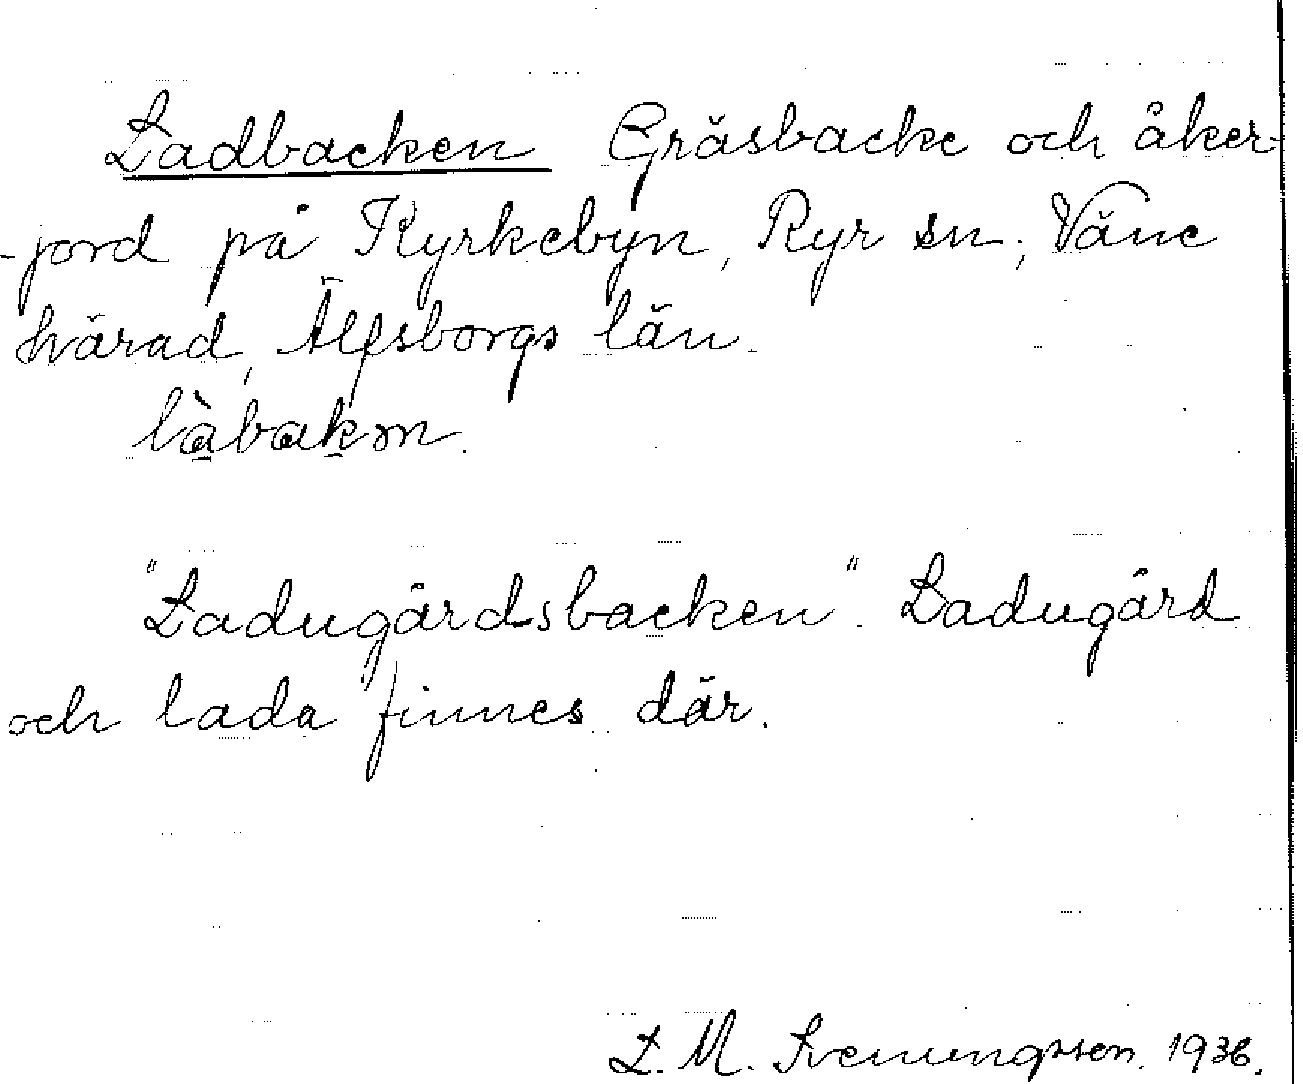 Ladbacken Gräsbacke och åker-
-jord på Kyrkebyn, Ryr sn, Väne
härad, Älfsborgs län.
làbakɷn.
"Ladugårdsbacken". Ladugård
och lada finnes där.
L. M. Svenungsson. 1936.